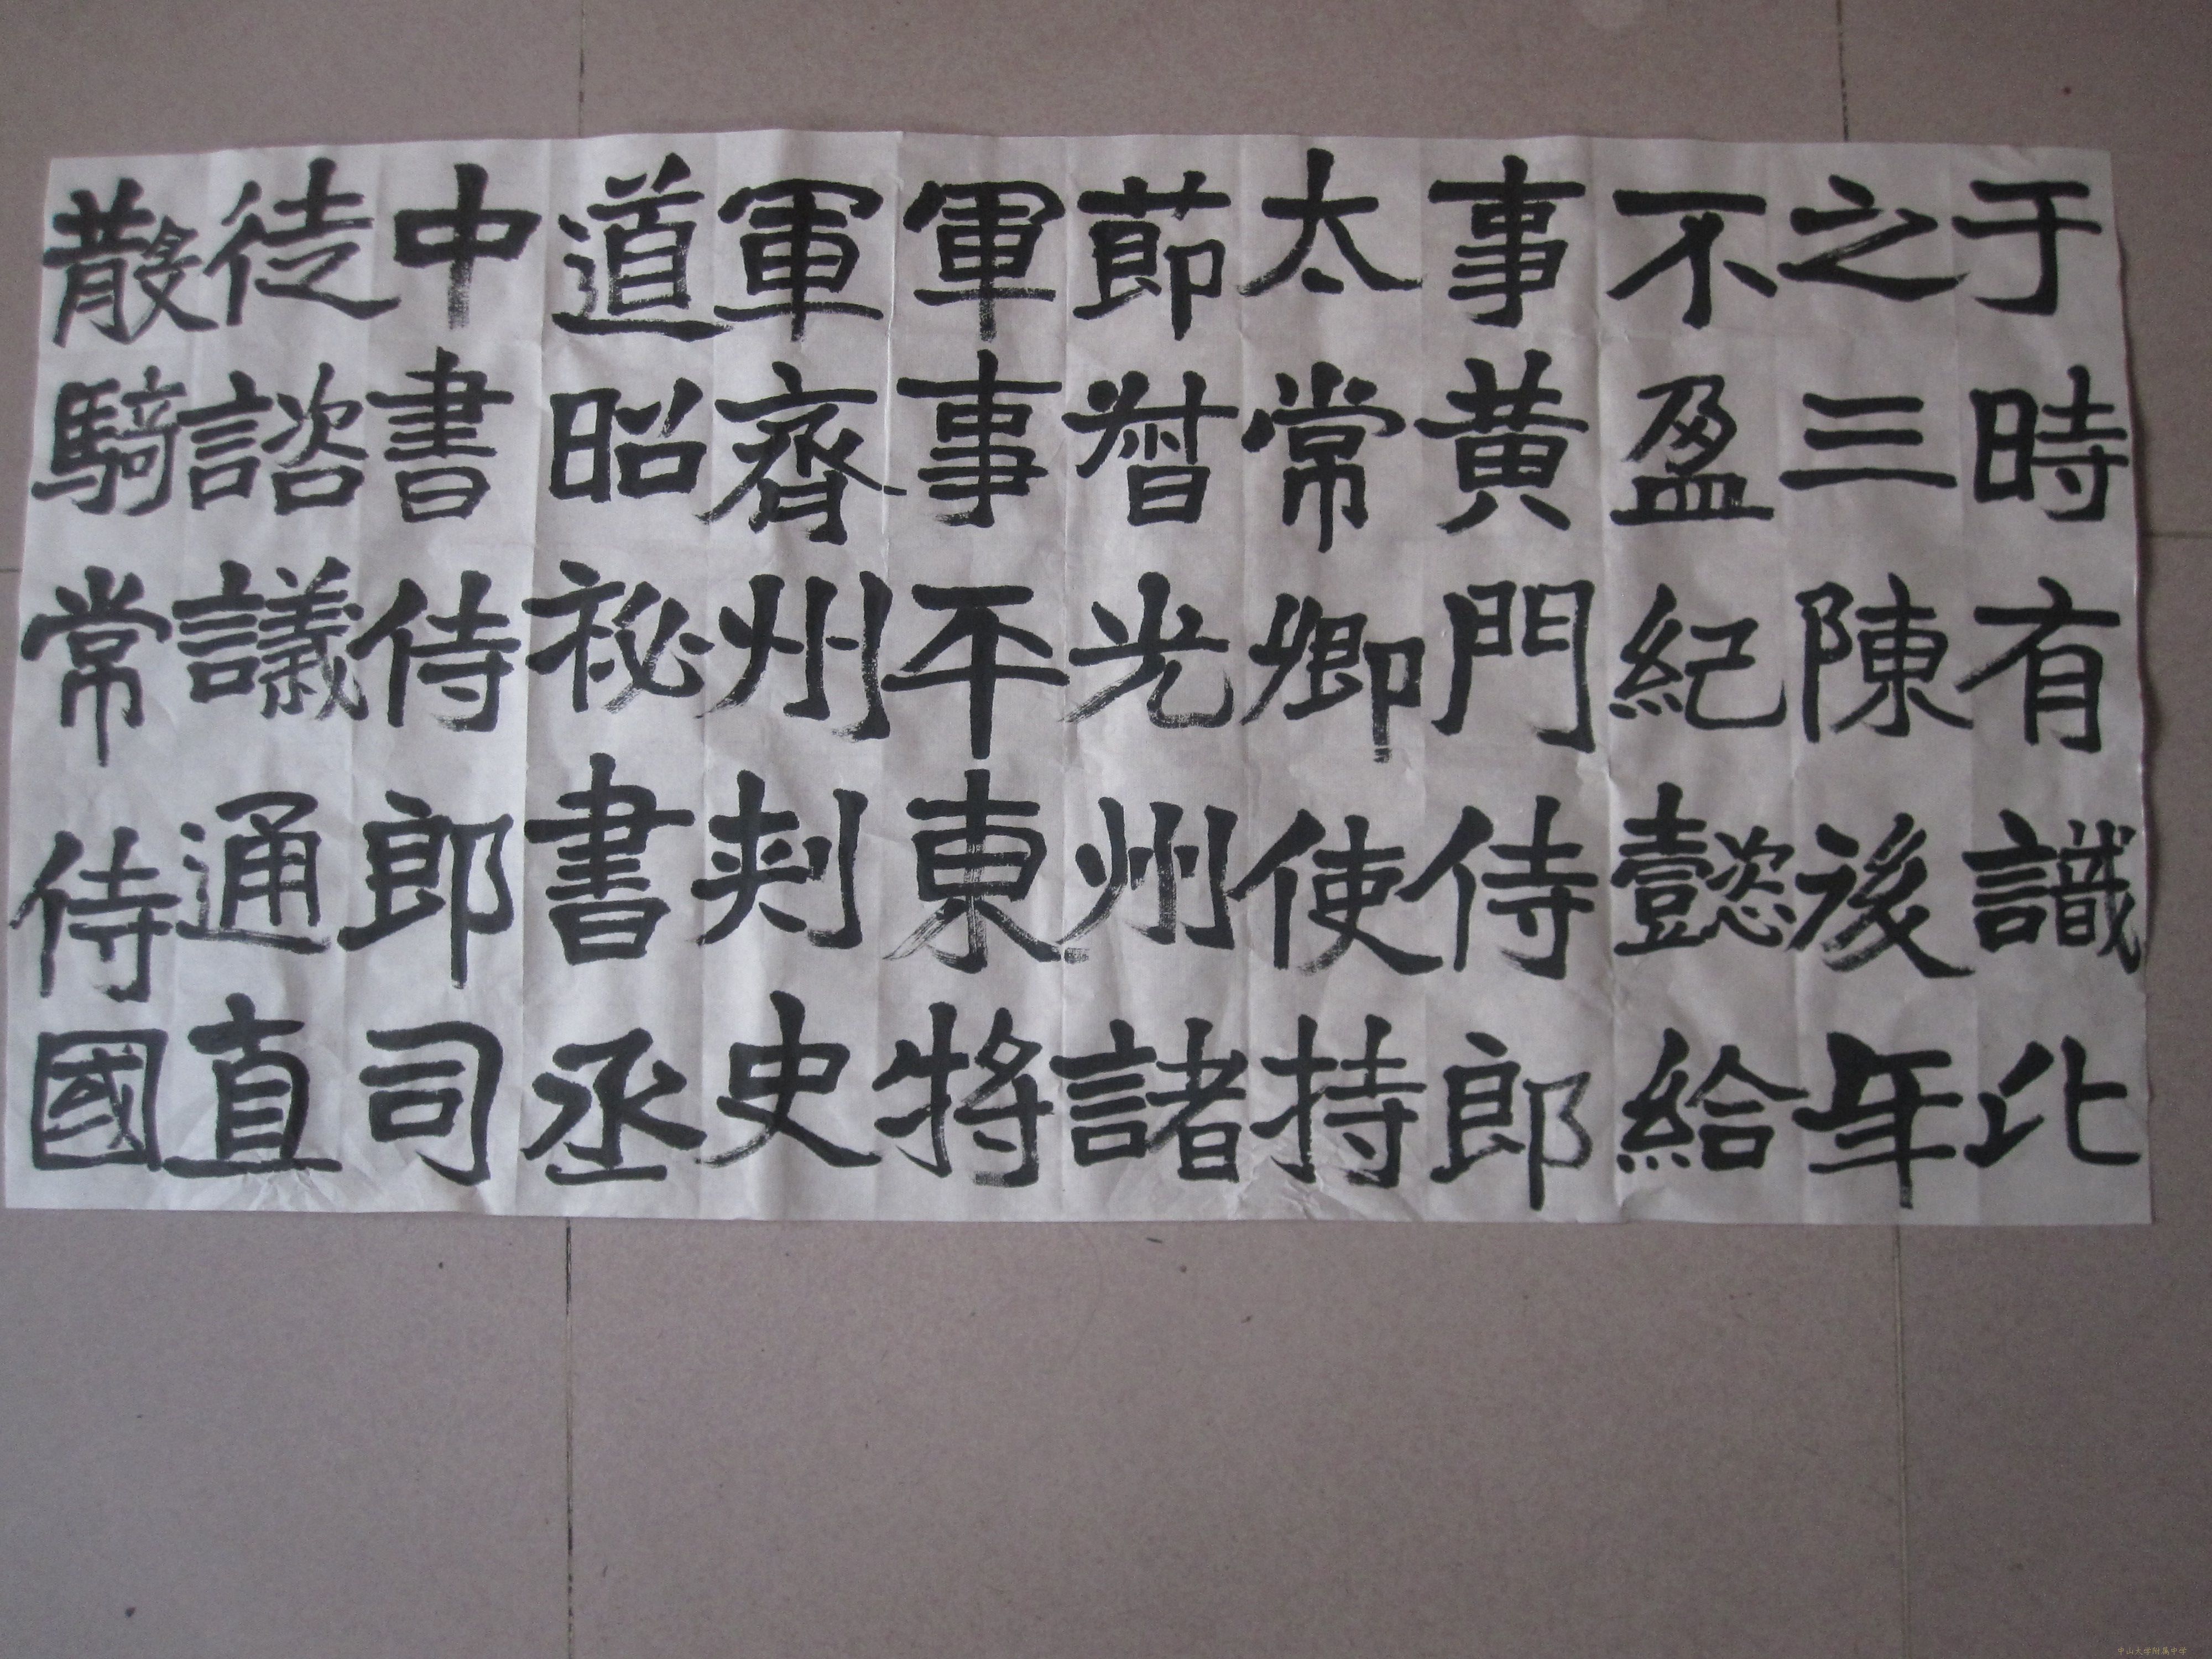 于時有識比
之三陳後年
不盈紀懿給
事黃門侍郎
太常卿使持
節督光州諸
軍事平東將
軍齊州刾史
道昭祕書丞
中書侍郎司
徒諮議通直
散騎常侍國
中山大学附属中学